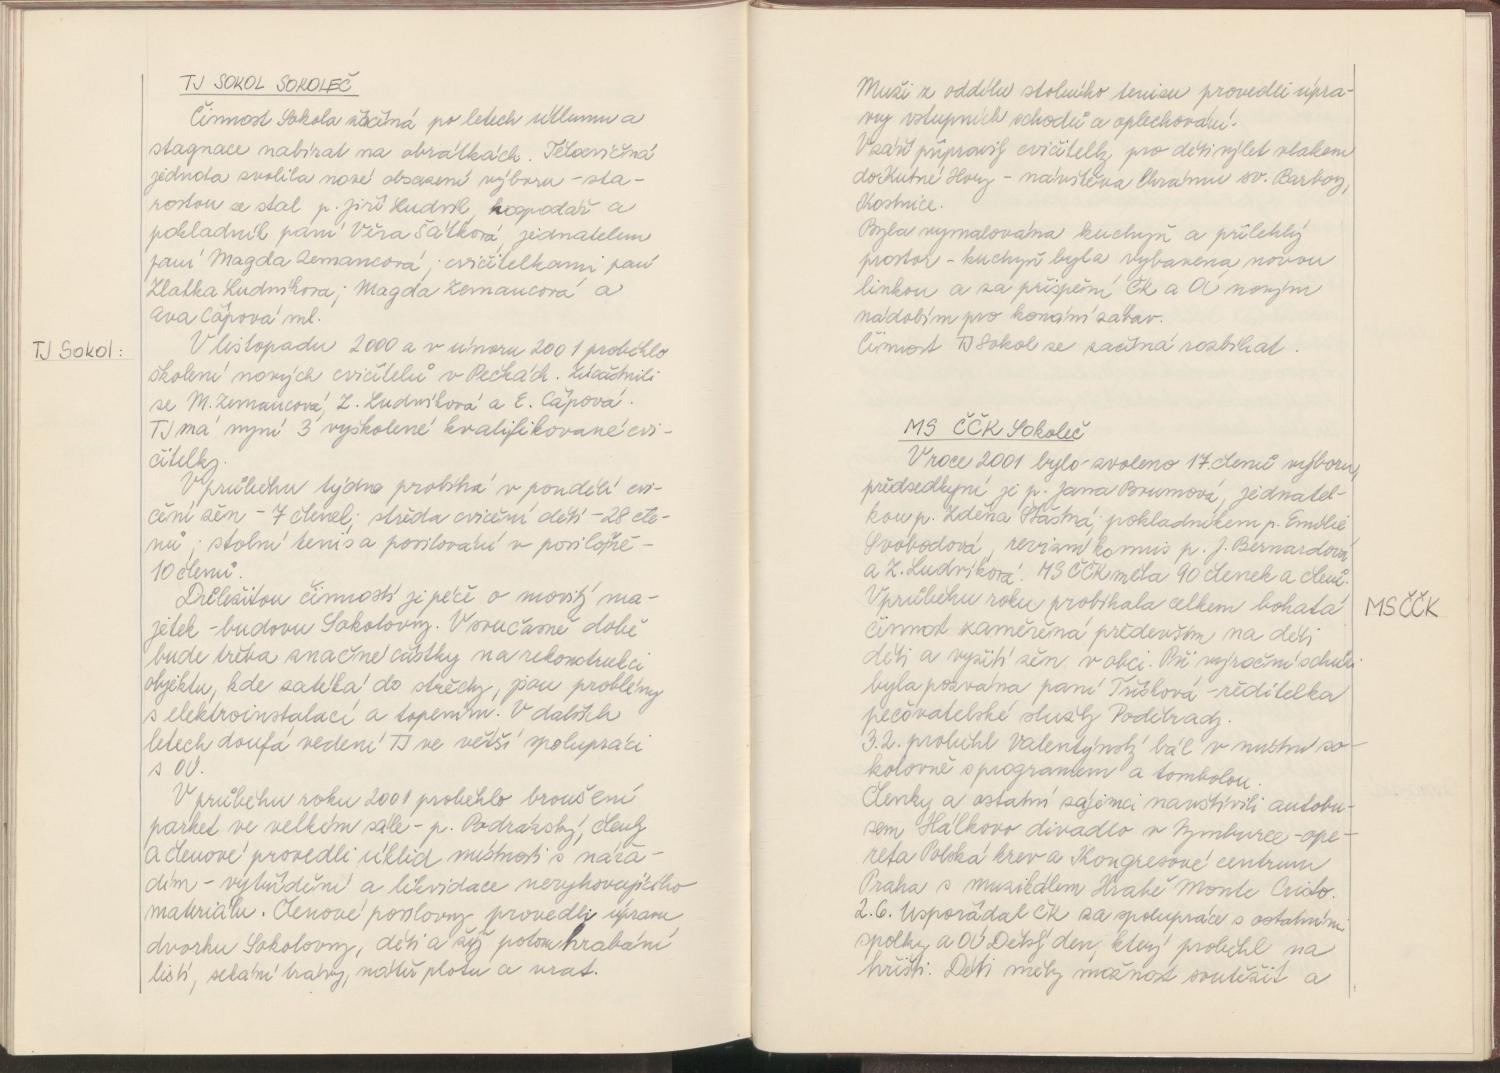 TJ SOKOL SOKOLEČ
Činnost Sokola začíná po letech útlumu a
stagnace nabírat na obrátkách. Tělocvičná
jednota zvolila nové obsazení výboru - sta-
rostou se stal p. Jiří Ludvík, hospodář a
pokladník paní Věra Šátková, jednatelem
paní Magda Zemancová; cvičitelkami paní
Zlatka Ludvíková; Magda Zemancová a
Eva Čápová ml.
TJ Sokol:
V listopadu 2000 a v únoru 2001 proběhlo
školení nových cvičitelů v Pečkách. Zúčastnili
se M. Zemancová, Z. Ludvíková a E. Čápová.
TJ má nyní 3 vyškolené kvalifikované cvi-
čitelky.
V průběhu týdne probíhá v pondělí cvi-
čení žen - 7 členek; středa cvičení dětí - 28 čle-
nů; stolní tenis a posilování v posilovně -
10 členů.
Důležitou činností je péče o movitý ma-
jetek - budovu Sokolovny. V současné době
bude třeba značné částky na rekonstrukci
objektu, kde zatéká do střechy, jsou problémy
s elektroinstalací a topením. V dalších
letech doufá vedení TJ ve větší spolupráci
s OÚ.
V průběhu roku 2001 proběhlo broušení
parket ve velkém sále - p. Podrázský, členky
a členové provedli úklid místnosti s nářa-
dím - vytřídění a likvidace nevyhovujícího
materiálu. Členové posilovny provedli úpravu
dvorku Sokolovny, děti a pak potom hrabání
listí, sekání trávy, nátěr plotu a vrat.
Muži z oddílu stolního tenisu provedli úpra-
vy vstupních schodů a oplechování.
V září připravily cvičitelky pro děti výlet vlakem
do Kutné Hory - návštěva Chrámu sv. Barbory,
Kostnice.
Byla vymalována kuchyň a přilehlý
prostor - kuchyň byla vybavena novou
linkou a za přispění ČK a OÚ novým
nádobím pro konání zábav.
Činnost TJ Sokol se začíná rozbíhat.
MS ČČK Sokoleč
V roce 2001 bylo zvoleno 17 členů výboru,
předsedkyní je p. Jana Brumová, jednatel-
kou p. Zdena Šťastná; pokladníkem p. Emilie
Svobodová, revizní komis p. J. Bernardová
a Z. Ludvíková. MS ČČK měla 90 členek a členů.
MS ČČK
V průběhu roku probíhala celkem bohatá
činnost zaměřená především na děti
děti a vyžití žen v obci. Při výroční schůzi
byla pozvána paní Tříšková - ředitelka
pečovatelské služby Poděbrady.
3.2. proběhl Valentýnský bál v místní so-
kolovně s programem a tombolou.
Členky a ostatní zájemci navštívili autobu-
sem Hálkovo divadlo v Nymburce - ope-
reta Polská krev a Kongresové centrum
Praha s muzikálem Hrabě Monte Cristo.
2.6. Uspořádal ČK za spolupráce s ostatními
spolky a OÚ Dětský den, který proběhl na
hřišti. Děti měly možnost soutěžit a